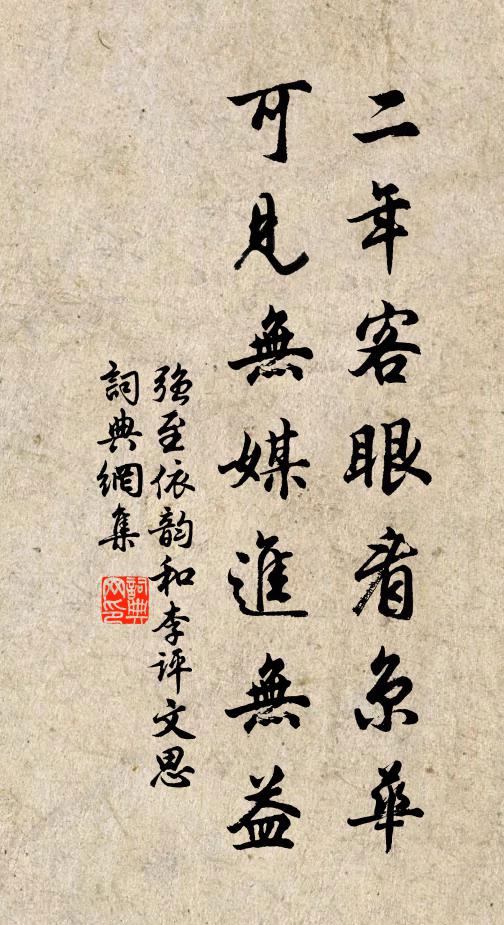 二年客眼看京華
可見無媒進無益
強至依韵和李評文思
詞典網集
詞典網印